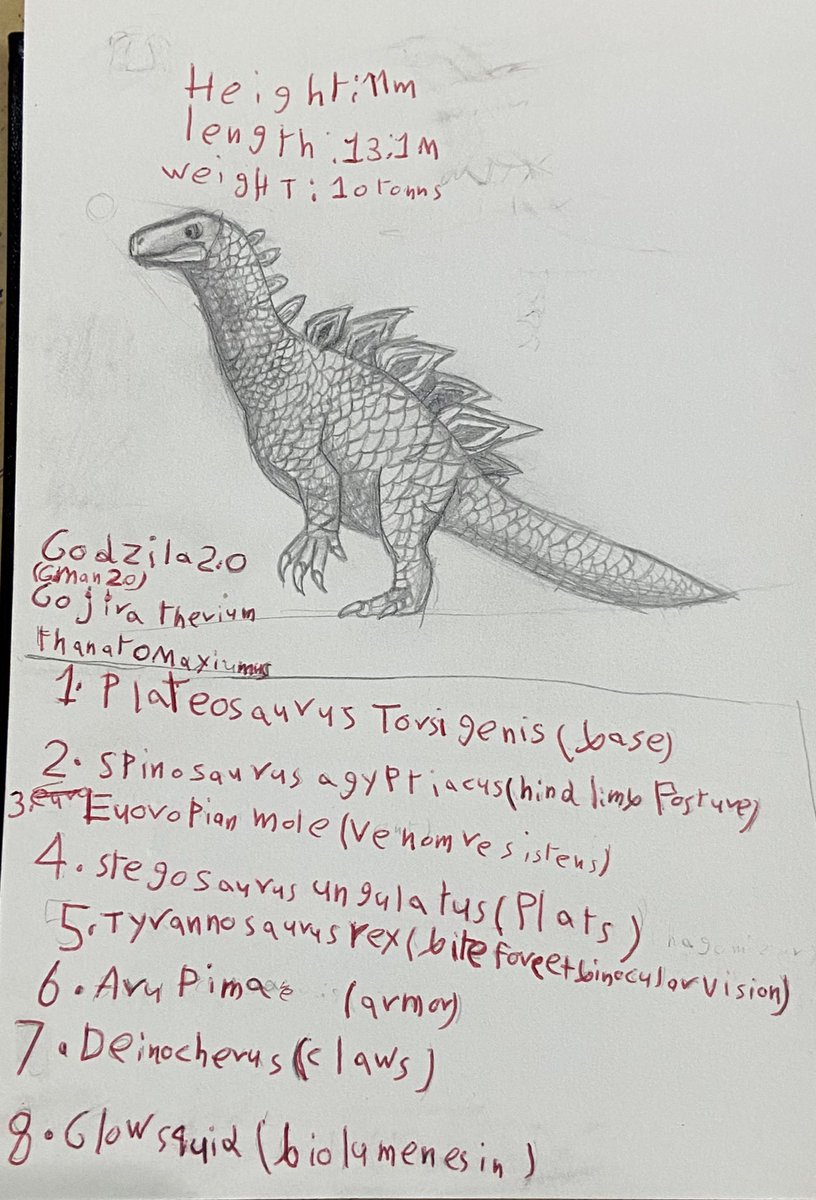 Height:11m
length:13.1M
weigHT:10tonns
Godzila2.0
(GMan20)
Gojira therium
thanatoMaxiumus
1. Plateosaurus Torsigenis (base)
2. SPinosaurus agyptiacus(hind limb Posture)
3. Euoropian mole (venomresistens)
4. stegosaurus ungulatus(Plats)
5. Tyrannosaurus rex(bite force+binocular vision)
6. AruPimae (armor)
7. Deinocherus(claws)
8. Glow squid (biolumenesin)